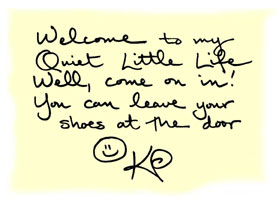 Welcome to my
Quiet Little Life
Well, come on in!
You can leave your
shoes at the door
KP